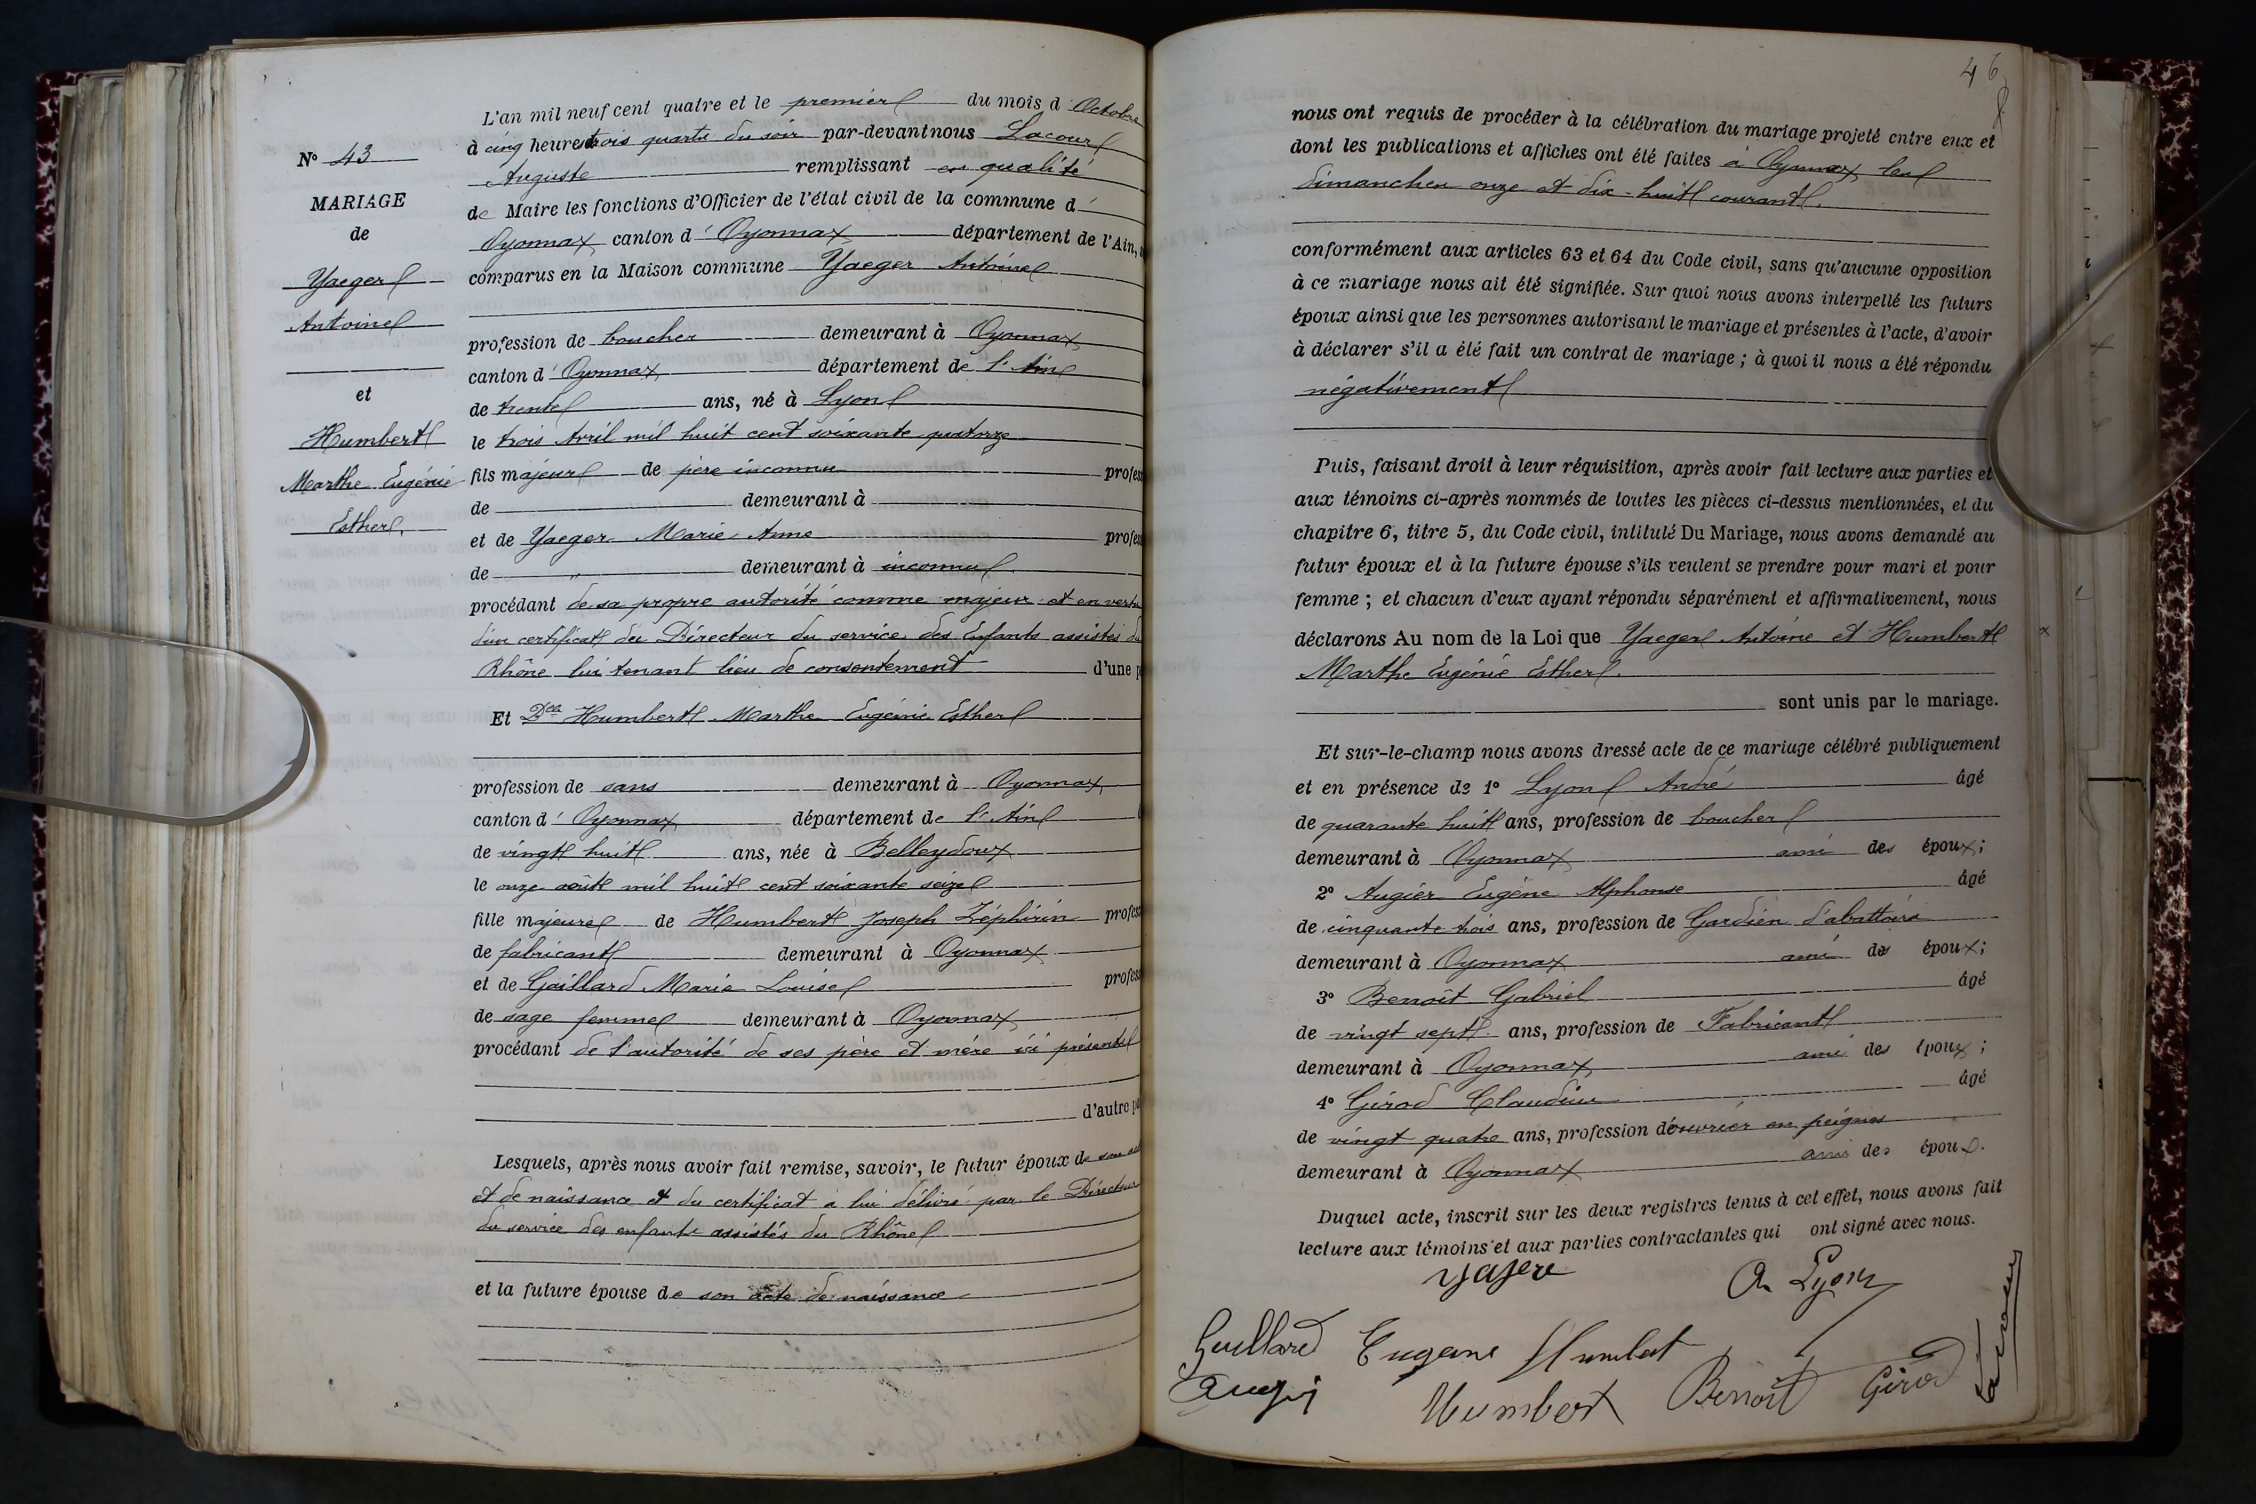 N° 43
MARIAGE
de
Yaeger
Antoine
et
Humbert
Marthe Eugénie
Esther.
L'an mil neuf cent quatre et le premier du mois d'Octobre
à cinq heures trois quarts du soir par-devant nous Lacour
Auguste remplissant en qualité
de Maire les fonctions d'Officier de l'état civil de la commune d'
Oyonnax canton d'Oyonnax département de l'Ain,
comparus en la Maison commune Yaeger Antoine
profession de boucher demeurant à Oyonnax
canton d'Oyonnax département de l'Ain
de trente ans, né à Lyon
le trois Avril mil huit cent soixante quatorze
fils majeur de père inconnu profes
de demeurant à
et de Yaeger Marie Anne profes
de " demeurant à inconnu
procédant de sa propre autorité comme majeur et en vertu
d'un certificat du Directeur du service des Enfants assistés du
Rhône lui tenant lieu de consentement d'une p
Et Dlle Humbert Marthe Eugénie Esther
profession de sans demeurant à Oyonnax
canton d'Oyonnax département de l'Ain
de vingt huit ans, née à Belleydoux
le onze août mil huit cent soixante seize
fille majeure de Humbert Joseph Zéphirin profess
de fabricant demeurant à Oyonnax
et de Gaillard Marie Louise profess
de sage femme demeurant à Oyonnax
procédant de l'autorité de ses père et mère ici présents
d'autre pa
Lesquels, après nous avoir fait remise, savoir, le futur époux de son
et de naissance et du certificat à lui délivré par le Directeur
du service des enfants assistés du Rhône
et la future épouse de son acte de naissance
46
nous ont requis de procéder à la célébration du mariage projeté entre eux et
dont les publications et affiches ont été faites à Oyonnax les
dimanches onze et dix-huit courant.
conformément aux articles 63 et 64 du Code civil, sans qu'aucune opposition
à ce mariage nous ait été signifiée. Sur quoi nous avons interpellé les futurs
époux ainsi que les personnes autorisant le mariage et présentes à l'acte, d'avoir
à déclarer s'il a été fait un contrat de mariage ; à quoi il nous a été répondu
négativement
Puis, faisant droit à leur réquisition, après avoir fait lecture aux parties et
aux témoins ci-après nommés de toutes les pièces ci-dessus mentionnées, et du
chapitre 6, titre 5, du Code civil, intitulé Du Mariage, nous avons demandé au
futur époux et à la future épouse s'ils veulent se prendre pour mari et pour
femme ; et chacun d'eux ayant répondu séparément et affirmativement, nous
déclarons Au nom de la Loi que Yaeger Antoine et Humbert
Marthe Eugénie Esther.
sont unis par le mariage.
Et sur-le-champ nous avons dressé acte de ce mariage célébré publiquement
et en présence de 1° Lyon André âgé
de quarante huit ans, profession de boucher
demeurant à Oyonnax ami des époux ;
2° Augier Eugène Alphonse âgé
de cinquante trois ans, profession de Gardien d'abattoirs
demeurant à Oyonnax ami des époux ;
3° Benoît Gabriel âgé
de vingt sept ans, profession de Fabricant
demeurant à Oyonnax ami des époux ;
4° Girod Claudius âgé
de vingt quatre ans, profession d'ouvrier en peignes
demeurant à Oyonnax ami des époux.
Duquel acte, inscrit sur les deux registres tenus à cet effet, nous avons fait
lecture aux témoins et aux parties contractantes qui ont signé avec nous.
A. Lyon
Eugene Humbert
Humbert
Benoit
Girod